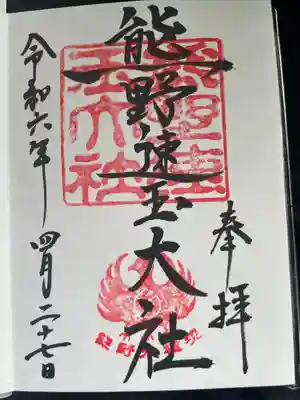 奉拝
熊野速玉大社
熊野速
玉大社
令和六年 四月二十七日